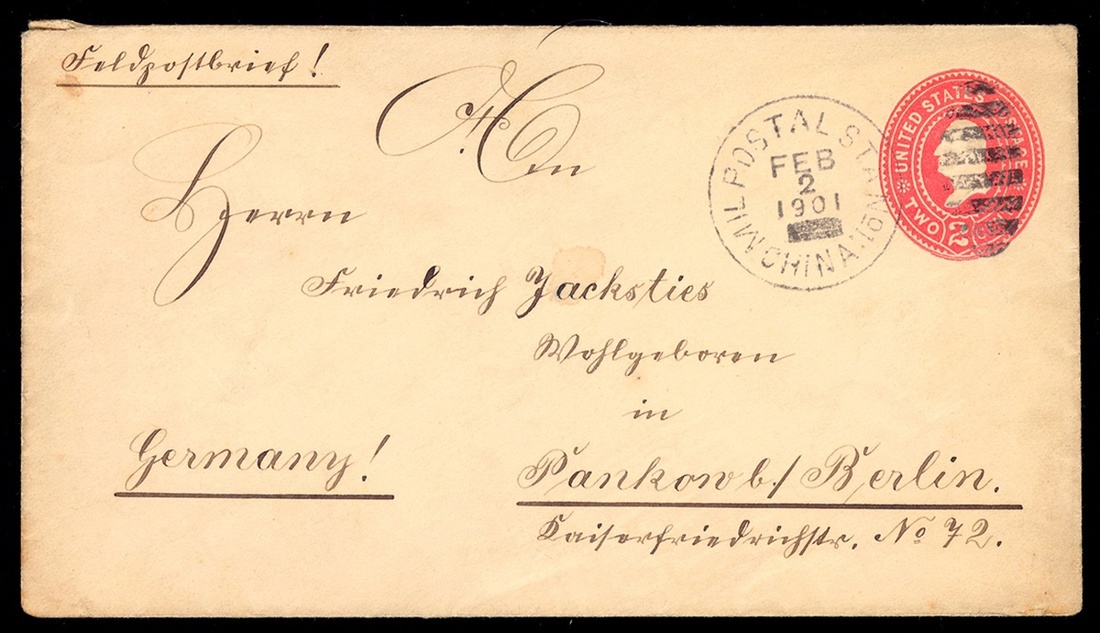 Feldpostbrief!
An
Herrn
Friedrich Jacksties
Wohlgeboren
in
Pankow b./Berlin.
Kaiserfriedrichstr. No 72.
Germany!
MIL. POSTAL STATION
FEB
2
1901
CHINA.
UNITED STATES POSTAGE
TWO 2 CENTS